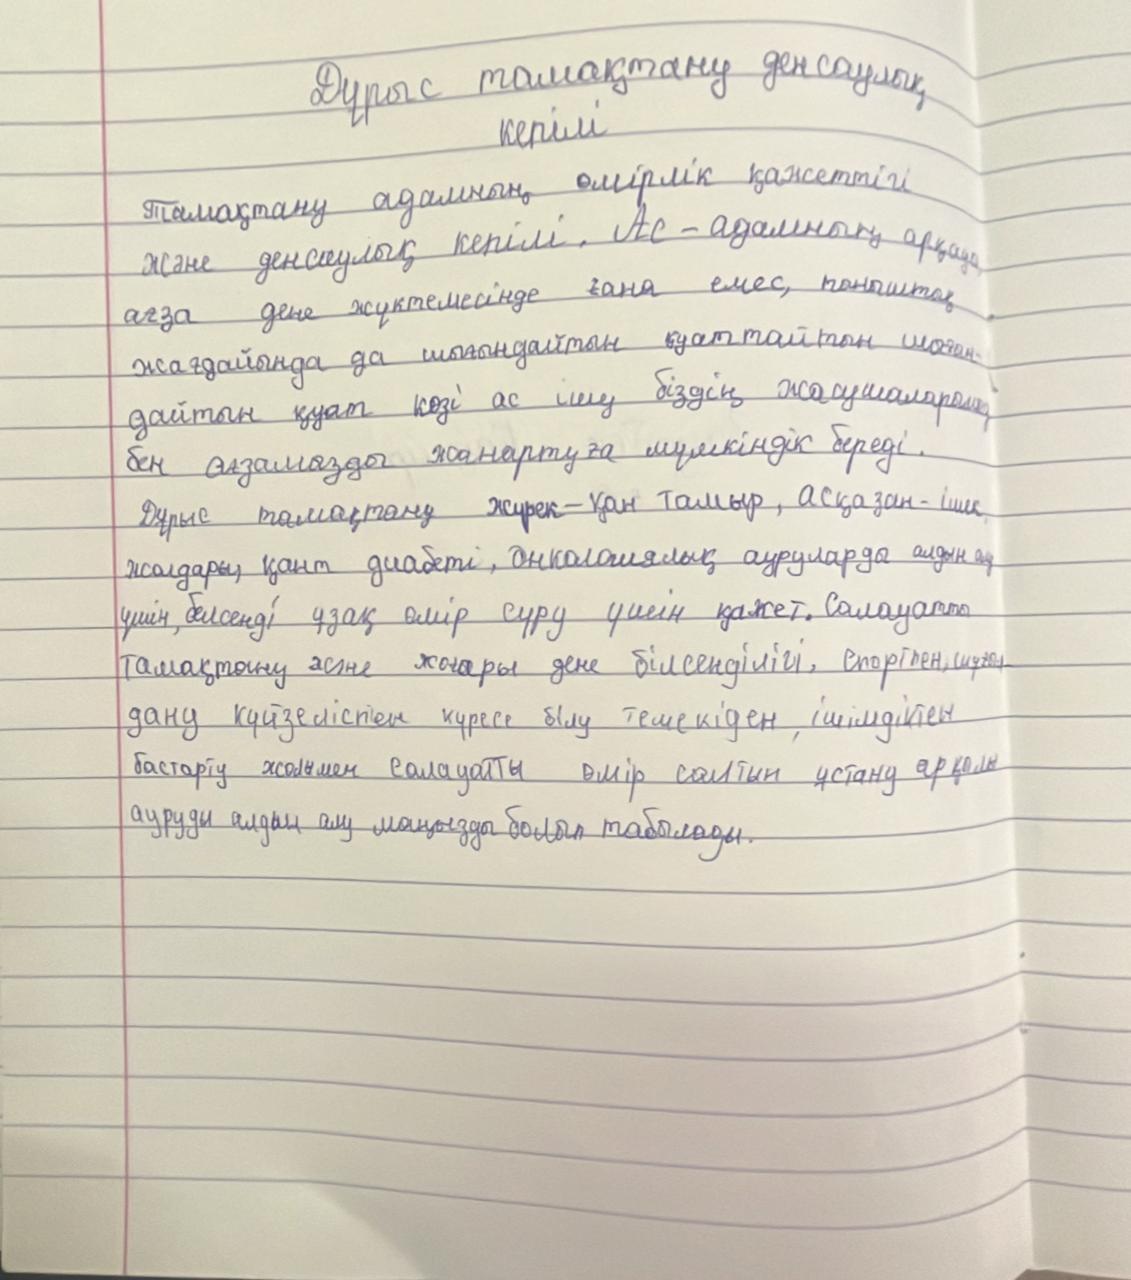 Дұрыс тамақтану денсаулық
кепілі
Тамақтану адамның өмірлік қажеттігі
және денсаулық кепілі. Ас - адамның арқауы,
ағза дене жүктемесінде ғана емес, тыныштық
жағдайында да шығындайтын қуаттайтын шығын-
дайтын қуат көзі ас ішу біздің жасушаларымыз
бен ағзамызды жаңартуға мүмкіндік береді.
Дұрыс тамақтану жүрек - қан тамыр, асқазан - ішек
жолдары, қант диабеті, онкологиялық ауруларды алдын алу
үшін, белсенді ұзақ өмір сүру үшін қажет. Салауатты
тамақтану және жоғары дене білсенділігі, спортпен, шұғыл
дану күйзеліспен күресе білу темекіден, ішімдіктен
бастарту жолымен салауатты өмір салтын ұстану арқылы
ауруды алдын алу маңызды болып табылады.